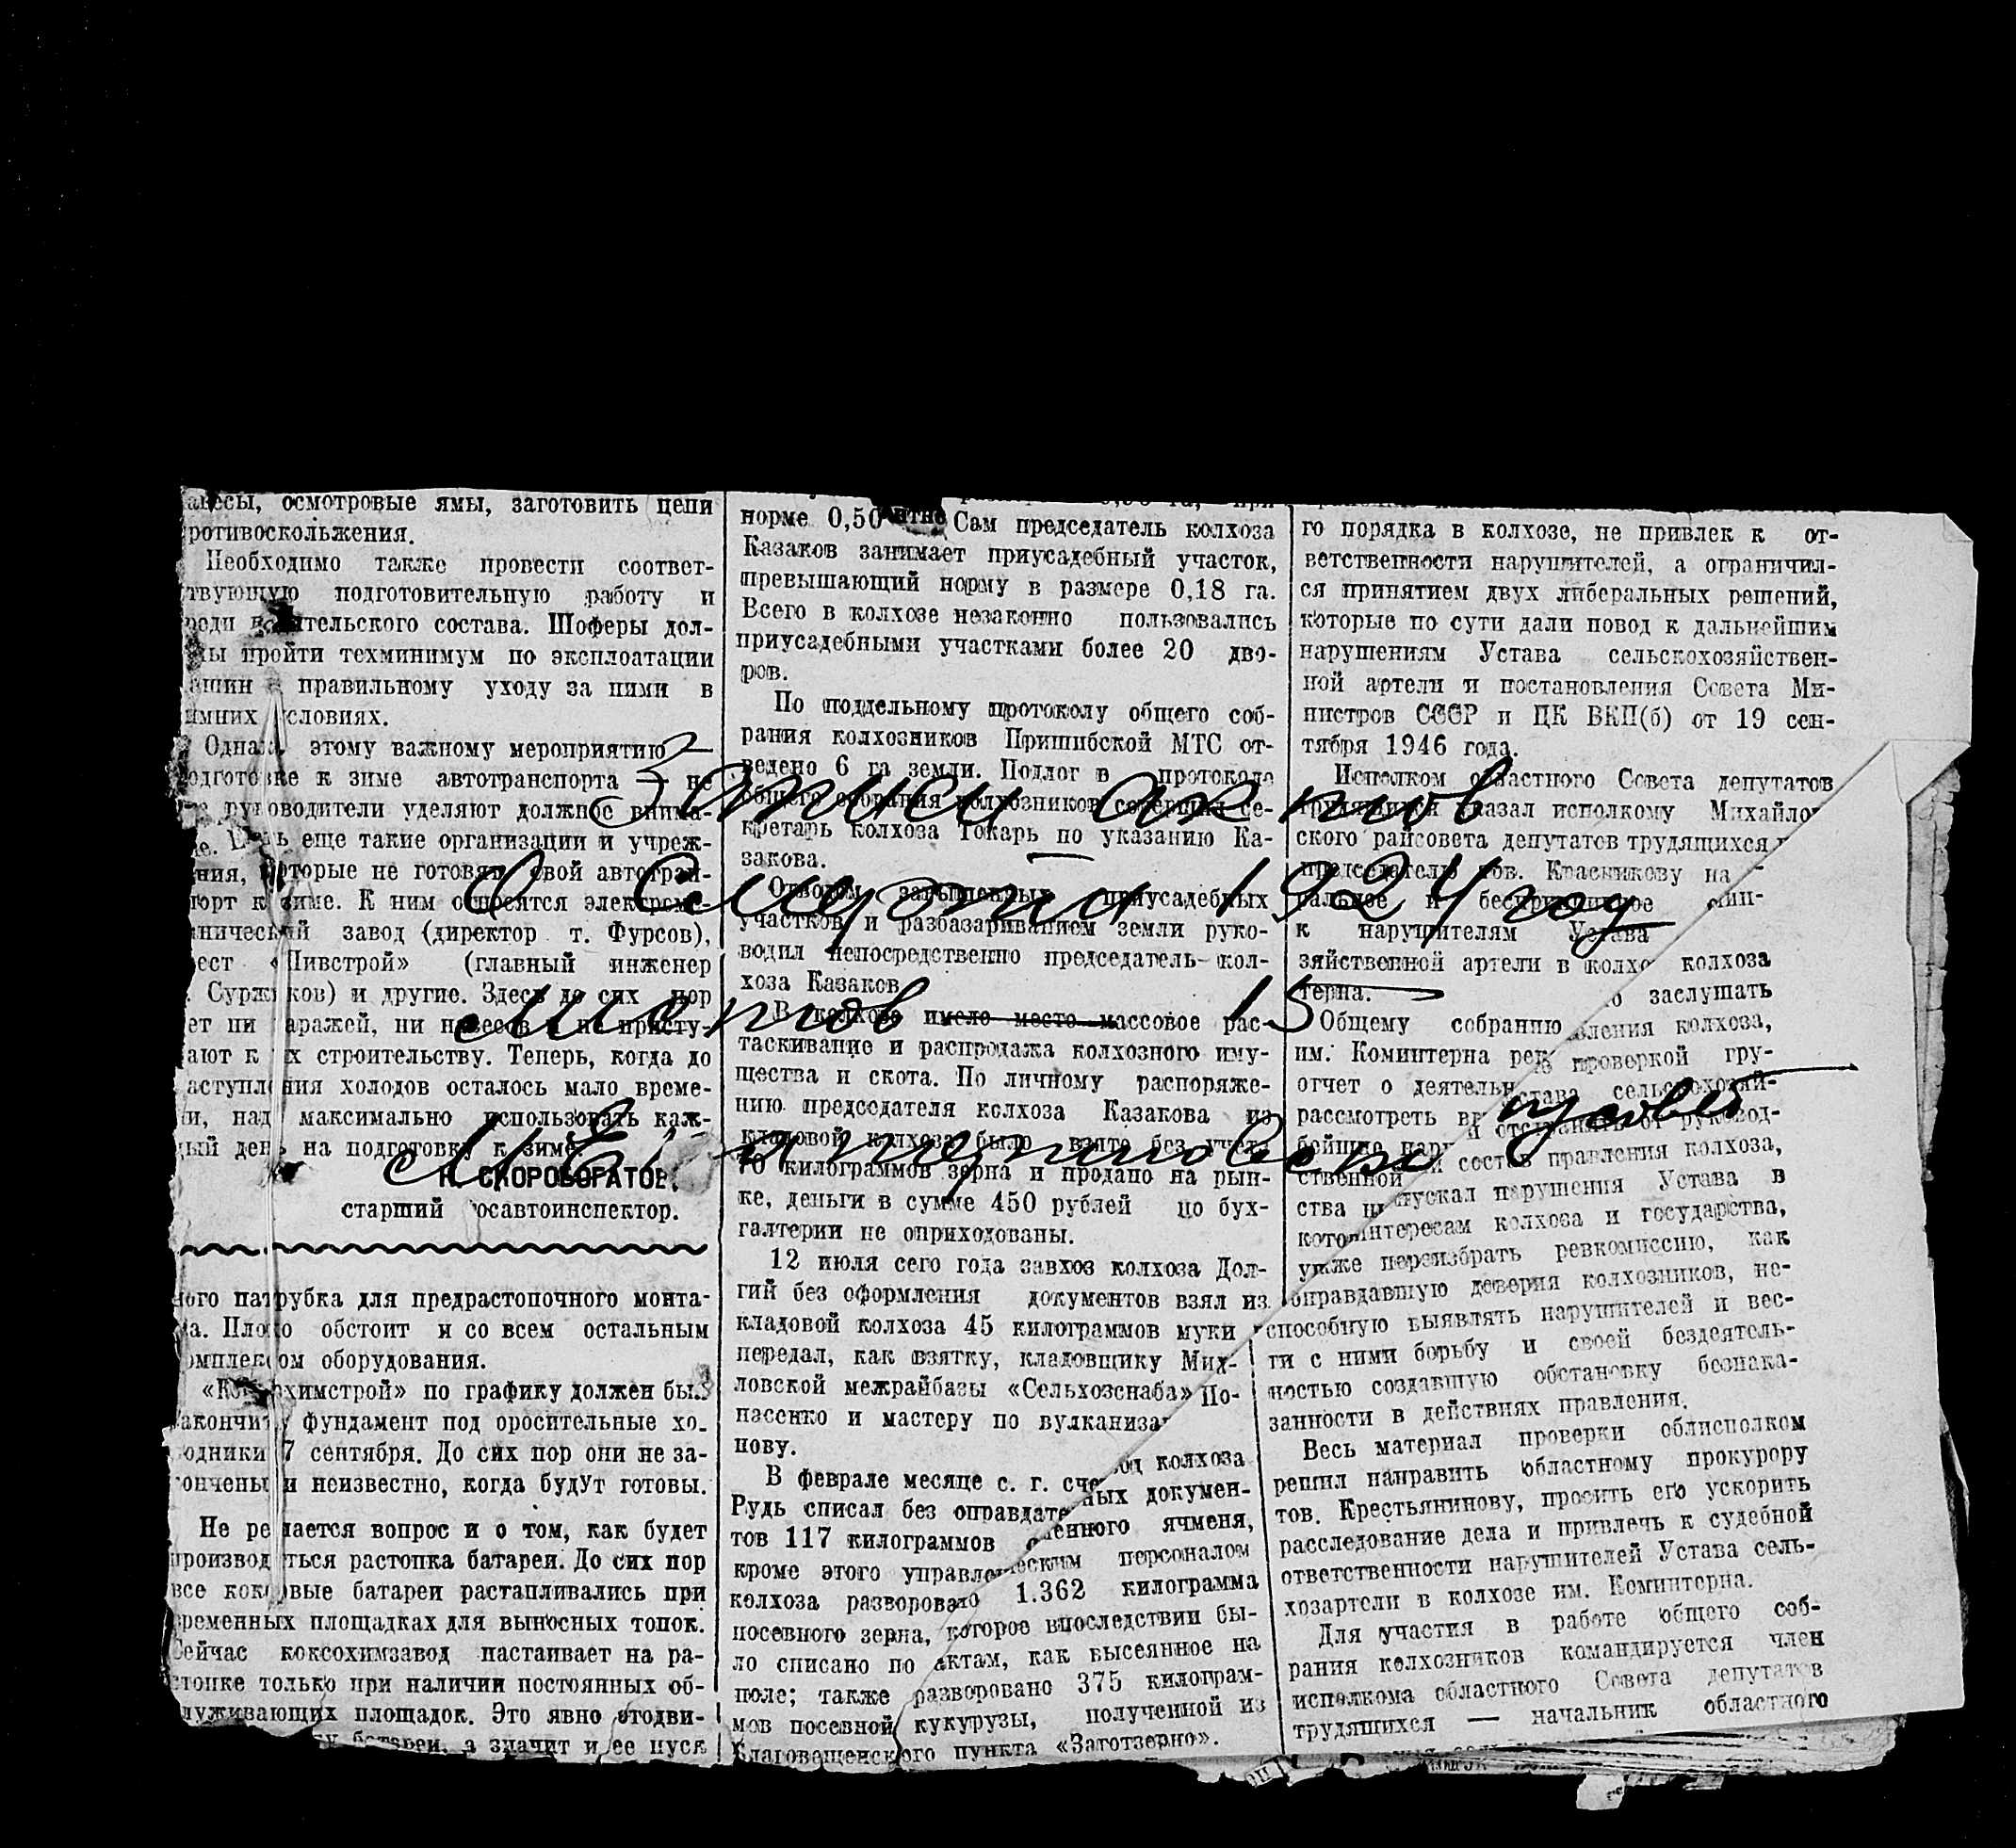 осмотровые ямы, заготовить цепи
ротивоскольжения.
Необходимо также провести соответ-
твующую подготовительную работу и
ительского состава. Шоферы дол-
пройти техминимум по эксплоатации
правильному уходу за ними в
имних словиях.
этому важному мероприятию —
к зиме автотранспорта — не
руководители уделяют должное внима-
еще такие организации и учреж-
ния, которые не готовят свой автотран-
порт к зиме. К ним относятся электроме-
нический завод (директор т. Фурсов),
ест «Пивстрой» (главный инженер
Суржиков) и другие. Здесь до сих пор
ет ни гаражей, ни навесов и не присту-
ают к их строительству. Теперь, когда до
аступления холодов осталось мало време-
и, надо максимально использовать каж-
дый день на подготовку к зиме.
Н. СКОРОБОГАТОВ,
старший осавтоинспектор.
ного патрубка для предрастопочного монта-
Плохо обстоит и со всем остальным
омплексом оборудования.
«Коксохимстрой» по графику должен был
закончить фундамент под оросительные хо-
7 сентября. До сих пор они не за-
кончены и неизвестно, когда будут готовы.
Не решается вопрос и о том, как будет
производиться растопка батареи. До сих пор
все коксовые батареи растапливались при
временных площадках для выносных топок.
Сейчас коксохимзавод настаивает на ра-
стопке только при наличии постоянных об-
служивающих площадок. Это явно отодви-
батареи, а значит и ее пуск
норме 0,50 Сам председатель колхоза
Казаков занимает приусадебный участок,
превышающий норму в размере 0,18 га.
Всего в колхозе незаконно пользовались
приусадебными участками более 20 дво-
ров.
По поддельному протоколу общего соб-
рания колхозников Пришибской МТС от-
ведено 6 га земли. Подлог в протоколе
общего собрания колхозников совершил се-
кретарь колхоза Токарь по указанию Ка-
закова.
Отводом приусадебных
участков и разбазариванием земли руко-
водил непосредственно председатель кол-
хоза Казаков
В колхозе имело место массовое рас-
таскивание и распродажа колхозного иму-
щества и скота. По личному распоряже-
нию председателя колхоза Казакова из
кладовой колхоза было взято без учета
70 килограммов зерна и продано на рын-
ке, деньги в сумме 450 рублей по бух-
галтерии не оприходованы.
12 июля сего года завхоз колхоза Дол-
гий без оформления документов взял из
кладовой колхоза 45 килограммов муки и
передал, как взятку, кладовщику Мих-
ловской межрайбазы «Сельхозснаба» По-
насенко и мастеру по вулканиза
нову.
В феврале месяце с. г. счетовод колхоза
Рудь списал без оправдательных докумен-
тов 117 килограммов ячменя,
кроме этого управленческим персоналом
колхоза разворовано 1.362 килограмма
посевного зерна, которое впоследствии бы-
ло списано по актам, как высеянное на
поле; также разворовано 375 килограм-
мов посевной кукурузы, полученной из
Благовещенского пункта «Заготзерно».
го порядка в колхозе, не привлек к от-
ветственности нарушителей, а ограничил-
ся принятием двух либеральных решений,
которые по сути дали повод к дальнейшим
нарушениям Устава сельскохозяйствен-
ной артели и постановления Совета Ми-
нистров СССР и ЦК ВКП(б) от 19 сен-
тября 1946 года.
Исполком областного Совета депутатов
трудящихся указал исполкому Михайлов
ского райсовета депутатов трудящихся
председателю тов. Красникову на
к нарушителям Устава
зяйственной артели в колхо колхоза
терна. заслушать
Общему собранию вления колхоза,
им. Коминтерна проверкой гру-
отчет о деятельн Устава сельскохозяй-
рассмотреть отстранить от руковод-
ственной состав правления колхоза,
ства пускал нарушения Устава в
интересам колхоза и государства,
переизбрать ревкомиссию, как
оправдавшую доверия колхозников, не-
способную выявлять нарушителей и вес-
ти с ними борьбу и своей бездеятель-
ностью создавшую обстановку безнака-
занности в действиях правления.
Весь материал проверки облисполком
решил направить областному прокурору
тов. Крестьянинову, просить его ускорить
расследование дела и привлечь к судебной
ответственности нарушителей Устава сель-
хозартели в колхозе им. Коминтерна.
Для участия в работе общего соб-
рания колхозников командируется член
исполкома областного Совета депутатов
трудящихся — начальник областного
Запись актов
о Смерти 1924 год
15